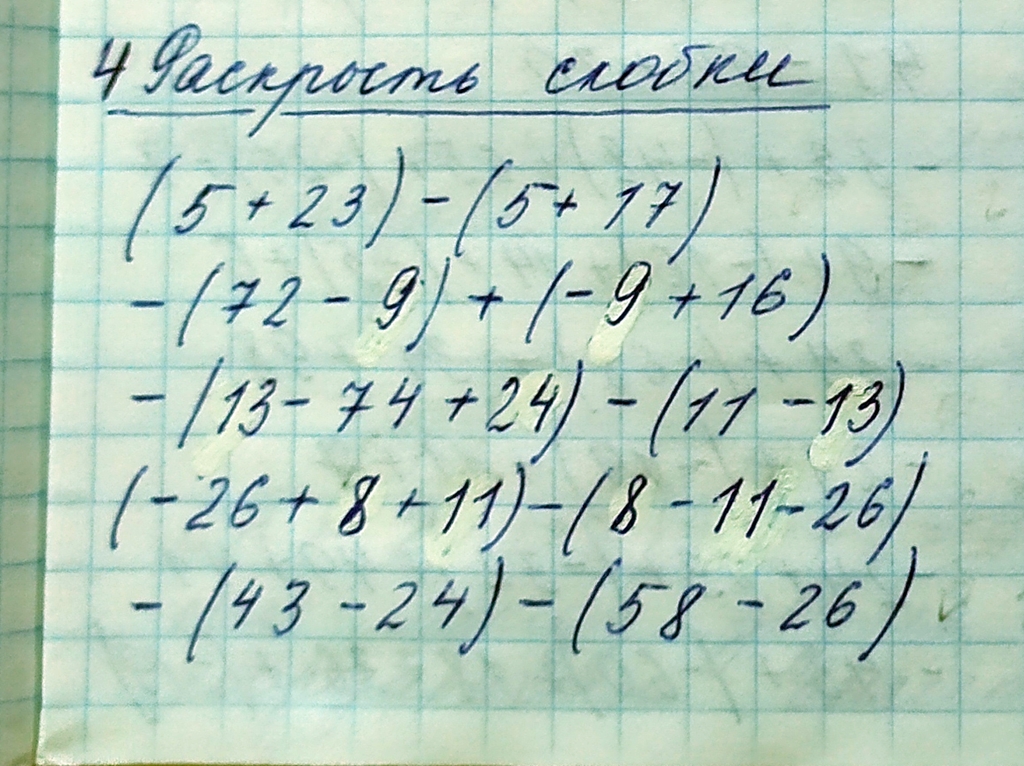 4 Раскрыть скобки
(5+23)-(5+17)
-(72-9)+(-9+16)
-(13-74+24)-(11-13)
(-26+8+11)-(8-11-26)
-(43-24)-(58-26)